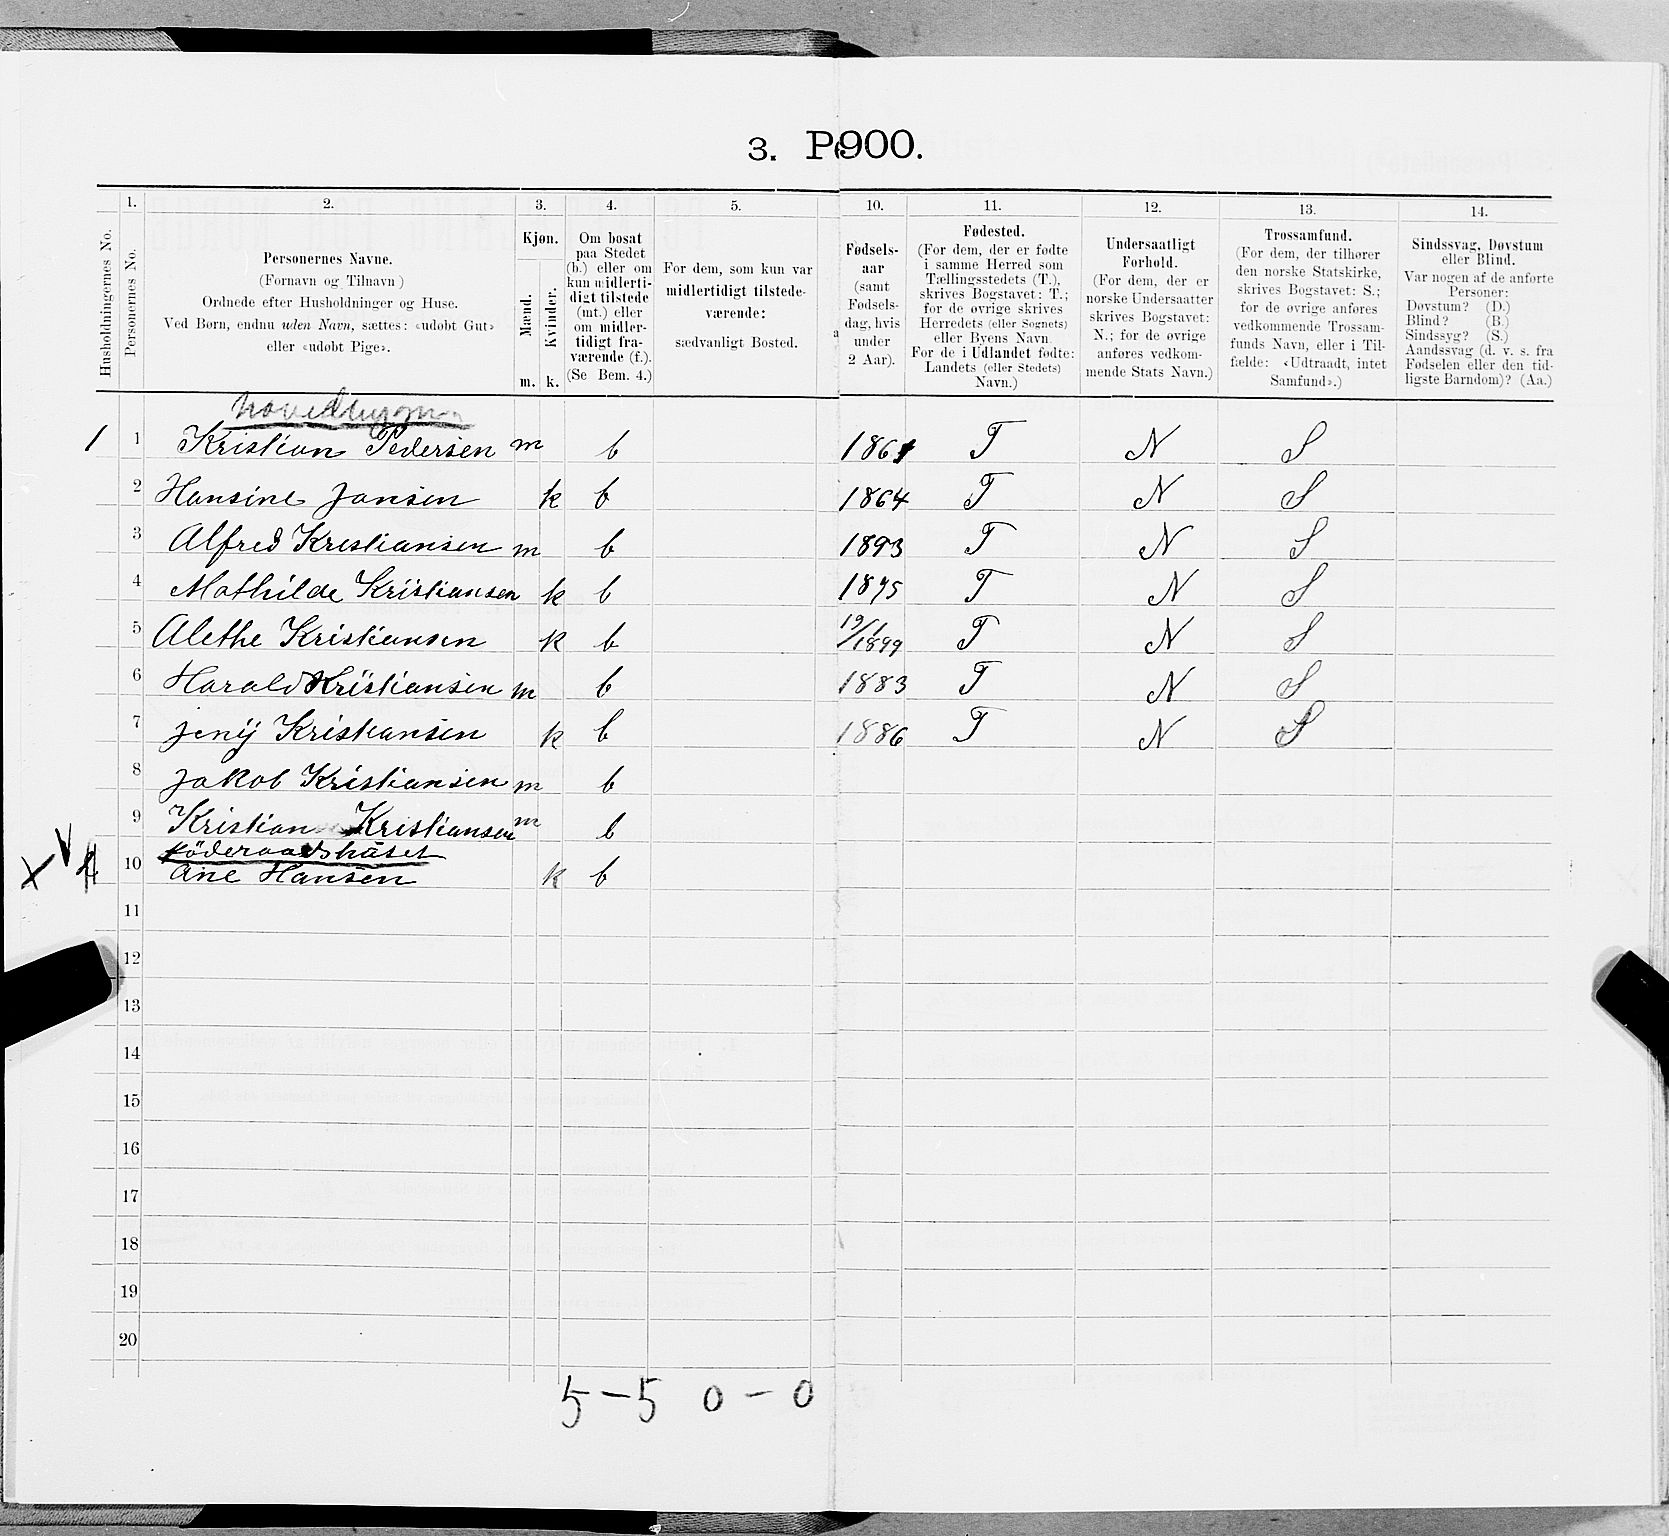 3. P900.
Husholdningernes No.
1.
Personernes No.
2.
Personernes Navne.
(Fornavn og Tilnavn)
Ordnede efter Husholdninger og Huse.
Ved Børn, endnu uden Navn, sættes: «udøbt Gut»
eller «udøbt Pige».
3.
Kjøn.
Mænd.
Kvinder.
m. k.
4.
Om bosat
paa Stedet
(b.) eller om
kun midlerti-
digt tilstede
(mt.) eller
om midler-
tidigt fra-
værende (f.).
(Se Bem. 4.)
5.
For dem, som kun var
midlertidigt tilstede-
værende:
sædvanligt Bosted.
10.
Fødsels-
aar
(samt
Fødsels-
dag, hvis
under
2 Aar).
11.
Fødested.
(For dem, der er fødte
i samme Herred som
Tællingsstedets (T.),
skrives Bogstavet: T.;
for de øvrige skrives
Herredets (eller Sognets)
eller Byens Navn.
For de i Udlandet fødte:
Landets (eller Stedets)
Navn.)
12.
Undersaatligt
Forhold.
(For dem, der er
norske Undersaatter
skrives Bogstavet:
N.; for de øvrige
anføres vedkom-
mende Stats Navn.)
13.
Trossamfund.
(For dem, der tilhører
den norske Statskirke,
skrives Bogstavet: S.;
for de øvrige anføres
vedkommende Trossam-
funds Navn, eller i Til-
fælde: «Udtraadt, intet
Samfund».)
14.
Sindssvag, Døvstum
eller Blind.
Var nogen af de anførte
Personer:
Døvstum? (D.)
Blind? (B.)
Sindssyg? (S.)
Aandssvag (d. v. s. fra
Fødselen eller den tid-
ligste Barndom)? (Aa.)
1 1 Kristian Pedersen m b 1861 T N S
2 Hansine Jansen k b 1864 T N S
3 Alfred Kristiansen m b 1893 T N S
4 Mathilde Kristiansen k b 1895 T N S
5 Alethe Kristiansen k b 19/1 1899 T N S
6 Harald Kristiansen m b 1883 T N S
7 Jenij Kristiansen k b 1886 T N S
8 Jakob Kristiansen m b
9 Kristian Kristiansen m b
föderaadshuset
10 Ane Hansen k b
11
12
13
14
15
16
17
18
19
20
5-5 0-0